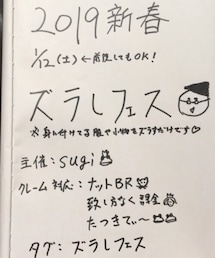 2019 新春
1/12(土)←前後してもOK!
ズラしフェス
身に付けてる服や小物をズラすだけです♡
主催:sugi
クレーム対応:ナットBR
致し方なく課金
たつきてぃ〜
タグ:ズラしフェス